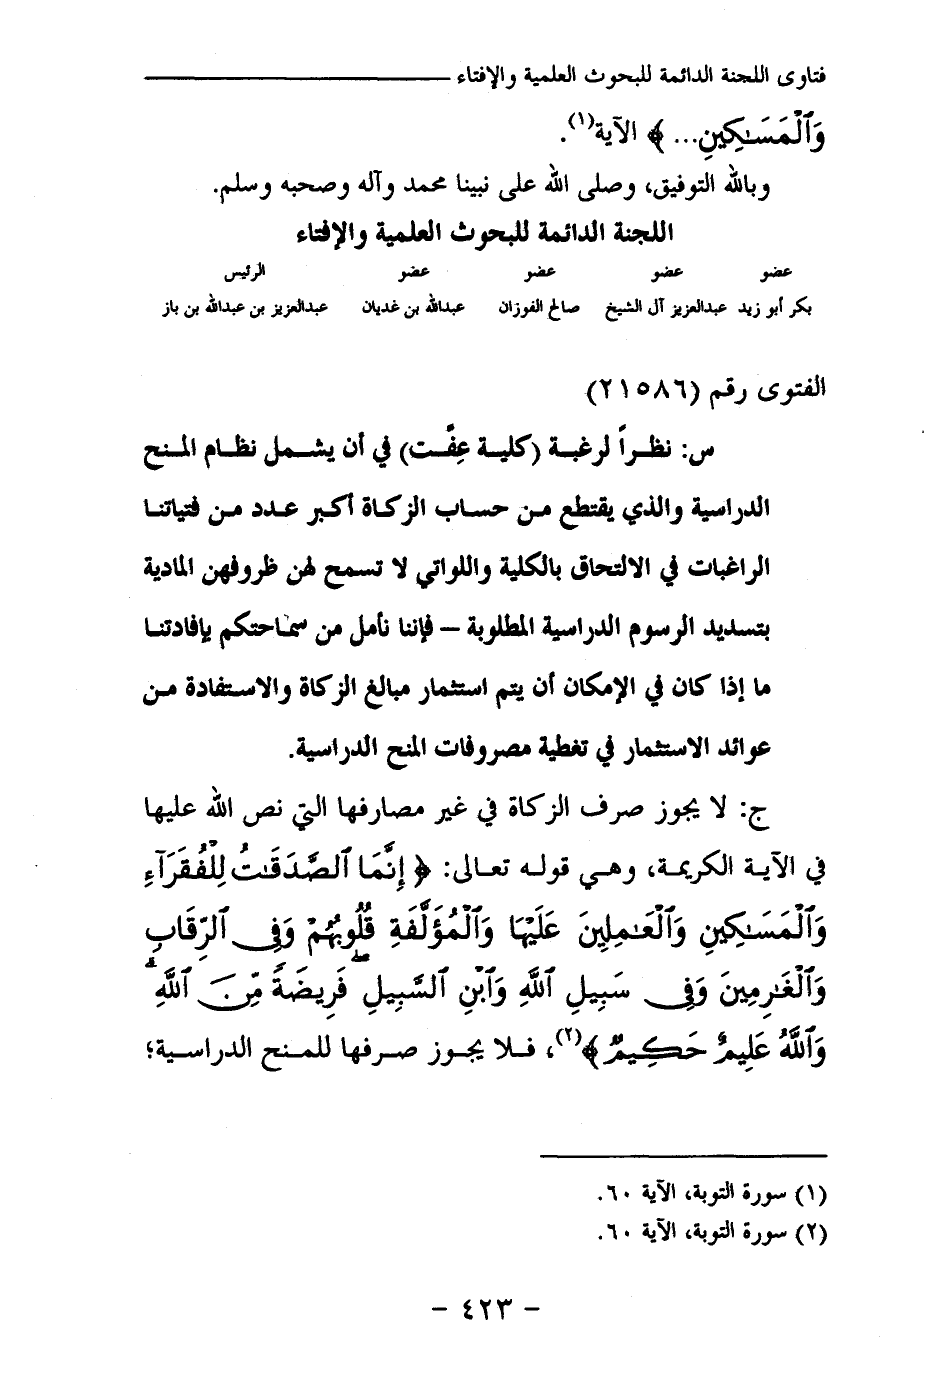 فتاوى اللجنة الدائمة للبحوث العلمية والإفتاء
وَٱلْمَسَـٰكِينِ... ﴾ الآية(١).
وبالله التوفيق، وصلى الله على نبينا محمد وآله وصحبه وسلم.
اللجنة الدائمة للبحوث العلمية والإفتاء
عضو عضو عضو عضو الرئيس
بكر أبو زيد عبدالعزيز آل الشيخ صالح الفوزان عبدالله بن غديان عبدالعزيز بن عبدالله بن باز
الفتوى رقم (٢١٥٨٦)
س: نظراً لرغبة (كلية عِفَّت) في أن يشمل نظام المنح
الدراسية والذي يقتطع من حساب الزكاة أكبر عدد من فتياتنا
الراغبات في الالتحاق بالكلية واللواتي لا تسمح لهن ظروفهن المادية
بتسديد الرسوم الدراسية المطلوبة – فإننا نأمل من سماحتكم بإفادتنا
ما إذا كان في الإمكان أن يتم استثمار مبالغ الزكاة والاستفادة من
عوائد الاستثمار في تغطية مصروفات المنح الدراسية.
ج: لا يجوز صرف الزكاة في غير مصارفها التي نص الله عليها
في الآية الكريمة، وهي قوله تعالى: ﴿ إِنَّمَا ٱلصَّدَقَـٰتُ لِلْفُقَرَآءِ
وَٱلْمَسَـٰكِينِ وَٱلْعَـٰمِلِينَ عَلَيْهَا وَٱلْمُؤَلَّفَةِ قُلُوبُهُمْ وَفِى ٱلرِّقَابِ
وَٱلْغَـٰرِمِينَ وَفِى سَبِيلِ ٱللَّهِ وَٱبْنِ ٱلسَّبِيلِ ۖ فَرِيضَةً مِّنَ ٱللَّهِ ۗ
وَٱللَّهُ عَلِيمٌ حَكِيمٌ ﴾(٢)، فلا يجوز صرفها للمنح الدراسية؛
(١) سورة التوبة، الآية ٦٠.
(٢) سورة التوبة، الآية ٦٠.
- ٤٢٣ -